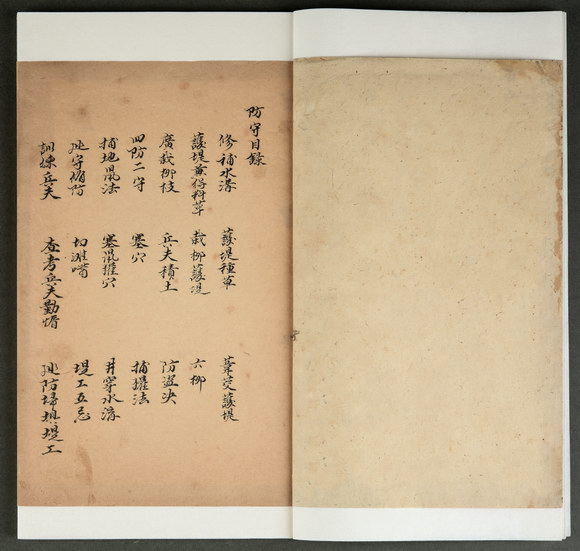 防守目錄
修補水溝　護堤種草　葦茭護堤
護堤兼俗料草　栽柳護堤　六柳
廣栽柳枝　兵夫積土　防盜决
四防二守　塞穴　捕獾法
捕地鼠法　塞鼠獾穴　井穿水溝
廵守俻防　切灘嘴　堤工五忌
訓練兵夫　查考兵夫勤惰　廵防埽壩堤工